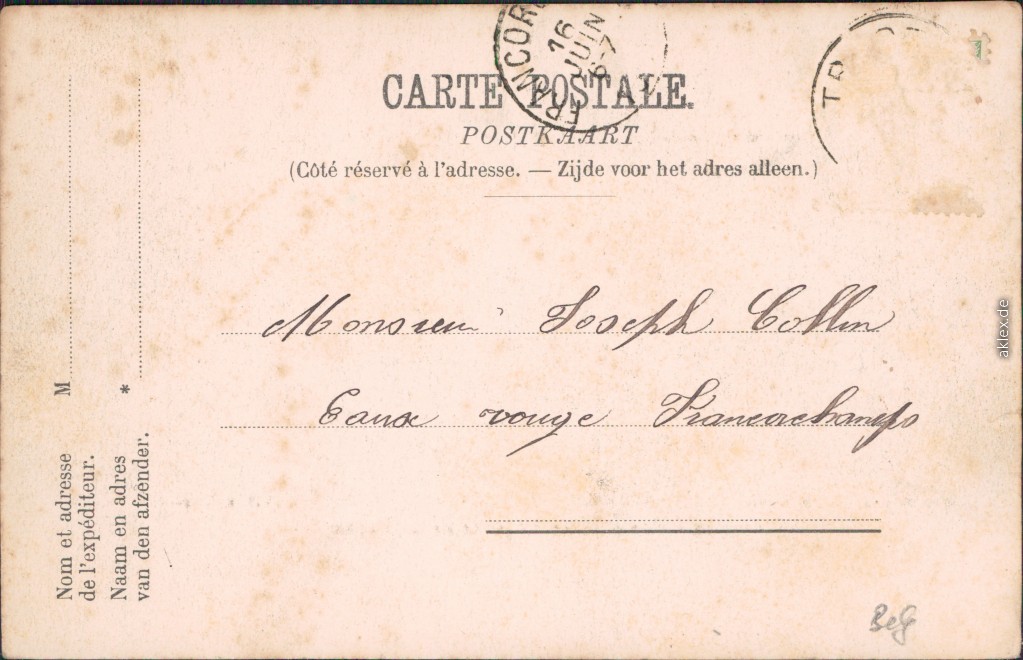 FRANCOR
16
JUIN
6-7
TR
CARTE POSTALE.
POSTKAART
(Côté réservé à l'adresse. — Zijde voor het adres alleen.)
Monsieur Joseph Collin
Eaux rouge Francorchamps
M
Nom et adresse
de l'expéditeur.
*
Naam en adres
van den afzender.
aklex.de
Belg